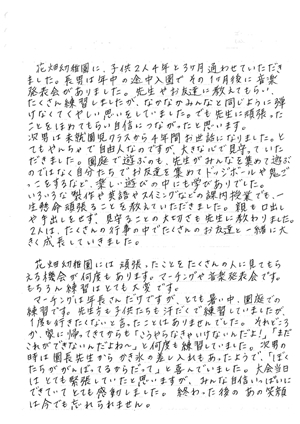 花畑幼稚園に、子供2人4年と3ヶ月通わせていただき
ました。長男は年中の途中入園でその1ヶ月後に音楽
発表会がありました。先生やお友達に教えてもらい、
たくさん練習しましたが、なかなかみんなと同じように弾
けなくてくやしい思いをしていました。でも先生に頑張った
ことをほめてもらい自信につながったと思います。
次男は未就園児クラスから4年間お世話になりました。と
てもやんちゃで自由人なのですが、大きな心で見守っていた
だきました。園庭で遊ぶのも、先生がみんなを集めて遊ぶ
のではなく自分たちでお友達を集めてドッジボールや鬼ご
っこをするなど、楽しい遊びの中にも学びありでした。
いろいろな製作や英語やスイミングなどの課内授業でも、一
生懸命頑張ることを教えていただきました。親も口出し
や手出しをせず、見守ることの大切さも先生に教わりました。
2人は、たくさんの行事の中でたくさんのお友達と一緒に大
きく成長していきました。
花畑幼稚園には頑張ったことをたくさんの人に見てもら
える機会が何度もあります。マーチングや音楽発表会です。
もちろん練習はとても大変です。
マーチングは年長さんだけですが、とても暑い中、園庭での
練習です。先生方も子供たちも汗だくで練習していましたが、
1度も行きたくないと言ったことはありませんでした。それどころ
か、家に帰ってきてからも「こうやらなきゃいけないんだよ!」「まだ
これができないんだよね~」と何度も練習していました。次男の
時は園長先生からかき氷の差し入れもあったようで、「ぼく
たちががんばってるからだって」と喜んでいました。大会当日
はとても緊張していたと思いますが、みんな自信いっぱいに
できていてとても感動しました。終わった後のあの笑顔
は今でも忘れられません。